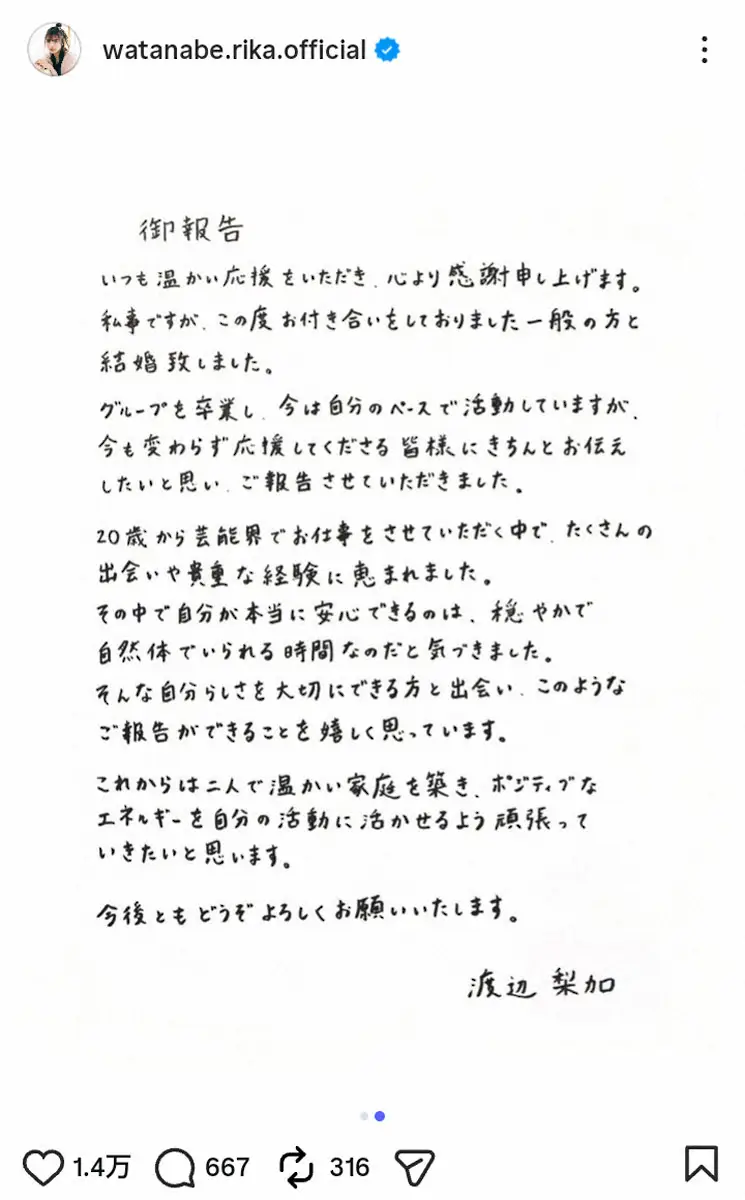 watanabe.rika.official
御報告
いつも温かい応援をいただき、心より感謝申し上げます。
私事ですが、この度お付き合いをしておりました一般の方と
結婚致しました。
グループを卒業し、今は自分のペースで活動していますが、
今も変わらず応援してくださる皆様にきちんとお伝え
したいと思い、ご報告させていただきました。
20歳から芸能界でお仕事をさせていただく中で、たくさんの
出会いや貴重な経験に恵まれました。
その中で自分が本当に安心できるのは、穏やかで
自然体でいられる時間なのだと気づきました。
そんな自分らしさを大切にできる方と出会い、このような
ご報告ができることを嬉しく思っています。
これからは二人で温かい家庭を築き、ポジティブな
エネルギーを自分の活動に活かせるよう頑張って
いきたいと思います。
今後ともどうぞよろしくお願いいたします。
渡辺 梨加
1.4万 667 316